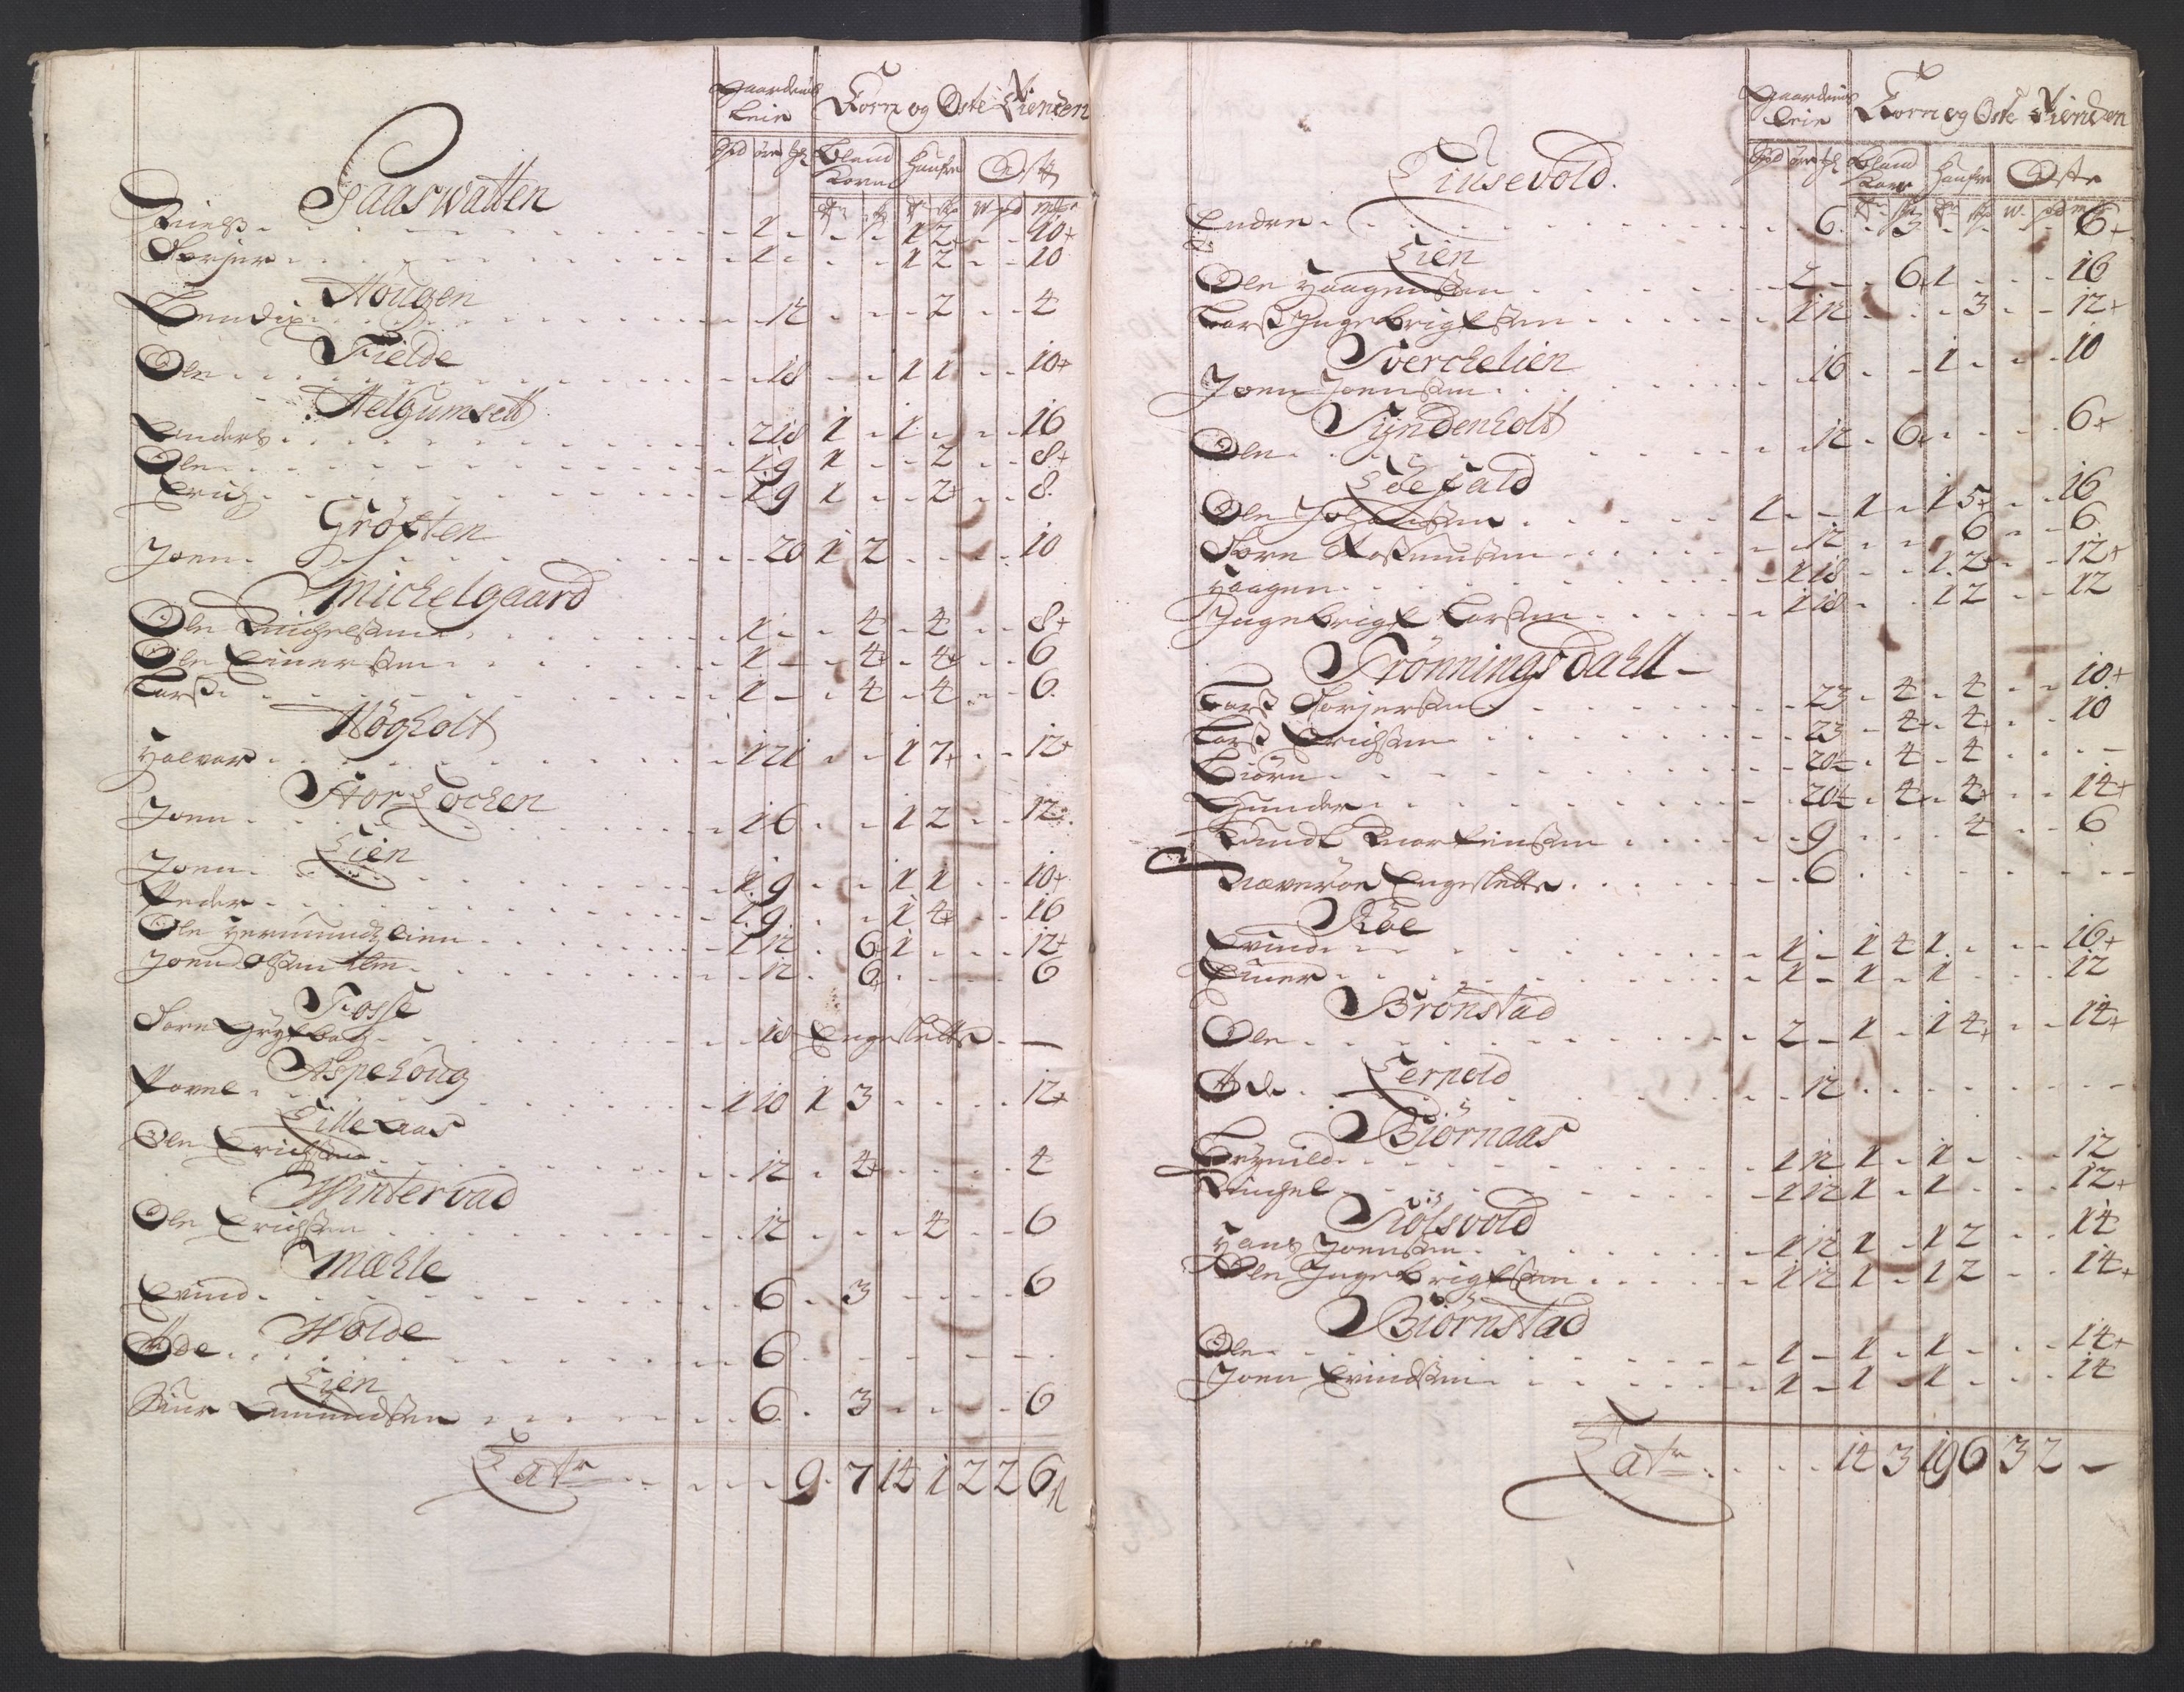 Gaardenis Leie Korn og Oste Tienden
Spd øre Bland Korn Haufre Ost
Gaaswatten
1 - - - - 1 2+ - - 10+
Torjer 1 - - - - 1 2 - - 10
Hougen
Bendix 12 - - - 2 - - 4
Fielde
Ole 18 - - 1 1 - - 10+
Helgumsett
Anders 2 18 1 - 1 - - - 16
Ole 1 9 1 - - 2 - - 8+
Erich 1 9 1 - - 2+ - - 8
Grøften
Joen 20 1 2 - - - - 10
Michelgaard
Ole Michelsen 1 - - 4 - 4 - - 8+
Ole Einersen 1 - - 4+ - 4+ - - 6
Lars 1 - - 4 - 4 - - 6
Høgholt
Halvor 1 21 - - 1 7+ - - 12+
Storlochen
Joen 1 6 - - 1 2 - - 12
Lien
Joen 1 9 - - 1 1 - - 10+
Peder 1 9 - - 1 4+ - - 16
Ole Hermundslien 1 12 - 6+ 1 - - - 12+
Joen Olsen 12 - 6 - - - - 6
Fosse
Tore 18 Engeslette -
Aspehoug
Povel 1 10 1 3 - - - - 12+
Lilleaas
Ole Erichsen 12 - 4+ - - - - 4
Wintervad
Ole Erichsen 12 - - - 4 - - 6
Mæhle
Evind 6 - 3 - - - - 6
Holde
Øde 6 - - - - - - -
Lien
Siur Amundsen 6 - 3 - - - - 6
Lat. 9 7 14 1 2 2 6
Gaardenis Leie Korn og Oste Tienden
Spd øre Bland Korn Haufre Oste
Liusevold
Endre 6 - 3 - - - - 6+
Lien
Ole Haagensen 2 - - 6+ 1 - - - 16
Lars Ingebrigtsen 1 12 - - - 3 - - 12+
Sverchelien
Joen Joensen 16 - - 1 - - - 10
Syndenholt
Ole 12 - 6+ - - - - 6+
Løefald
Ole Johansen 1 - - 1 - 1 5+ - - 16
Tore Rasmusen 12 - - - 6 - - 6
Haagen 1 18 - - 1 2+ - - 12+
Ingebrigt Larsen 1 18 - - 1 2 - - 12
Trønningsdahll
Lars Torjersen 23 - 4 - 4 - - 10+
Lars Erichsen 23 - 4+ - 4+ - - 10
Biørn 20 - 4 - 4 - - -
Gunder 20 - 4+ - 4+ - - 14+
Knudt Mortensen 9 - - - 4 - - 6
Næverøe Engeslette 6 - - - - - - -
Røe
Evind 1 - 1 4 1 - - - 16+
Einer 1 - 1 - 1 - - - 12
Brønstad
Ole 2 - 1 - 1 4+ - - 14+
Lerpold
Øde 12 - - - - - - -
Biørnaas
Brynild 1 12 1 - 1 - - - 12
Michel 1 12 1 - 1 - - - 12+
Kiølsvold
Hans Joensen 1 12 1 - 1 2 - - 14
Ole Ingebrigtsen 1 12 1 - 1 2 - - 14+
Biørnstad
Ole 1 - 1 - 1 - - - 14+
Joen Evindsen 1 - 1 - 1 - - - 14
Lat. 14 3 19 6 3 2 -